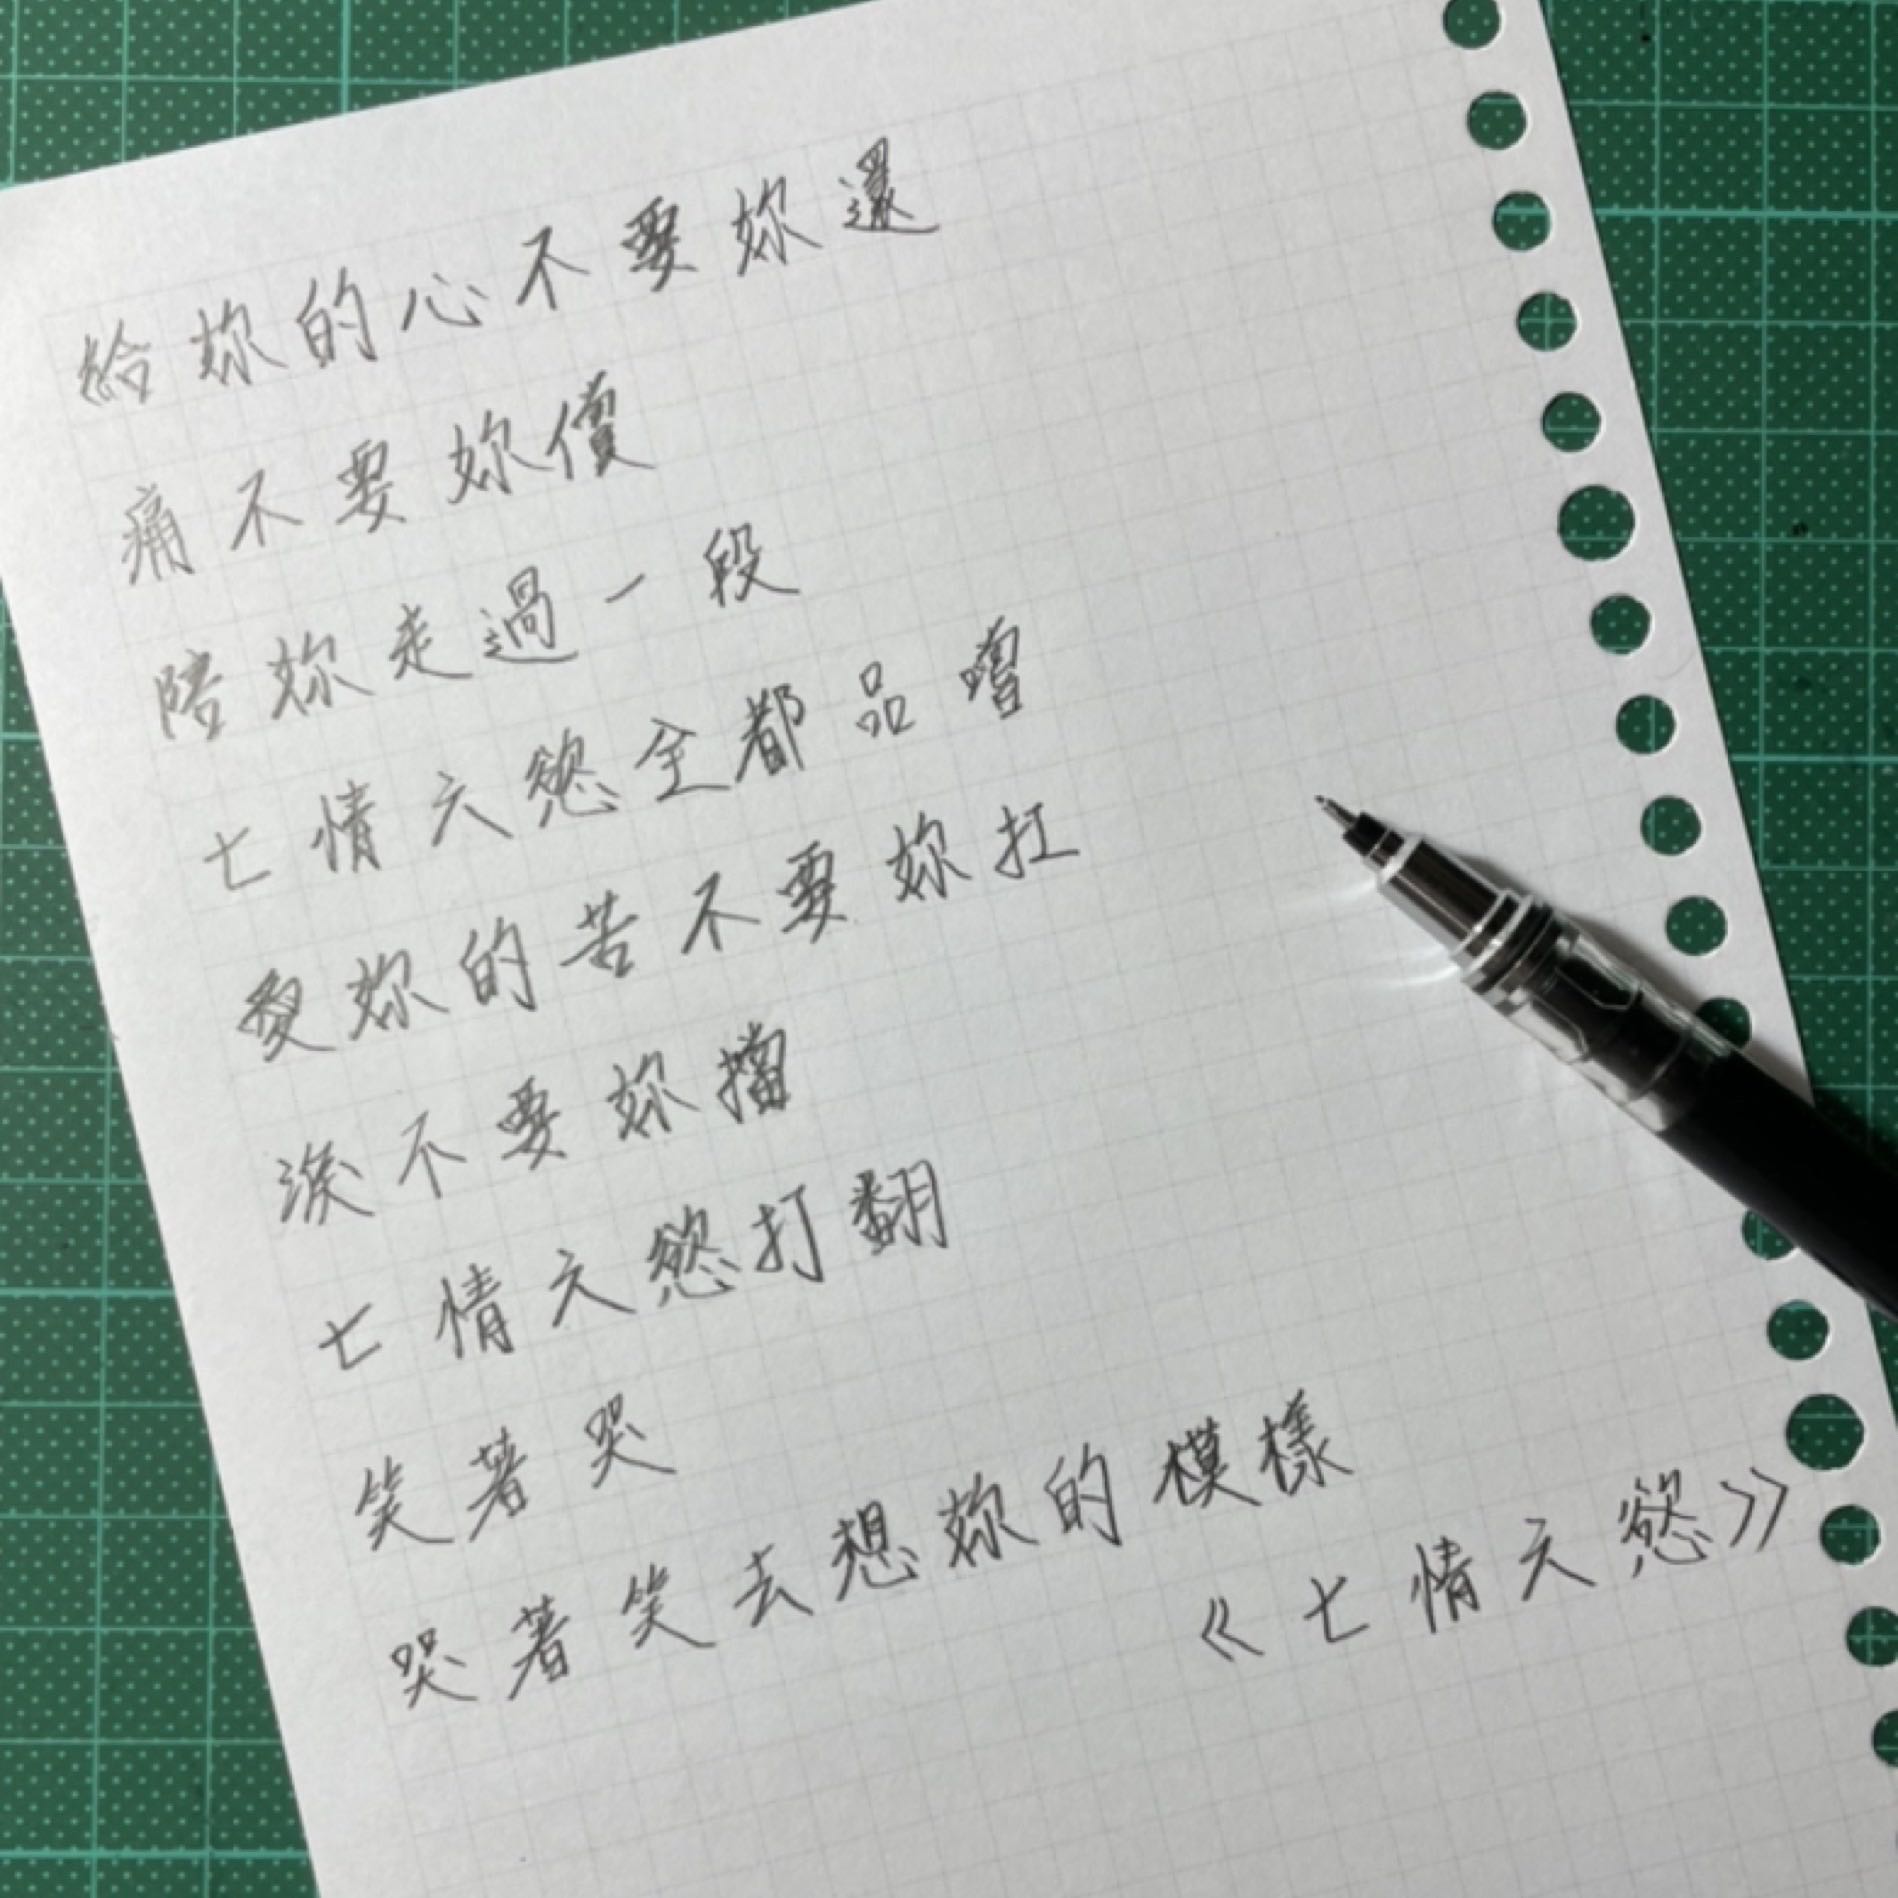 給妳的心不要妳還
痛不要妳償
陪妳走過一段
七情六慾全都品嚐
愛妳的苦不要妳扛
淚不要妳擋
七情六慾打翻
笑著哭
哭著笑去想妳的模樣
《七情六慾》